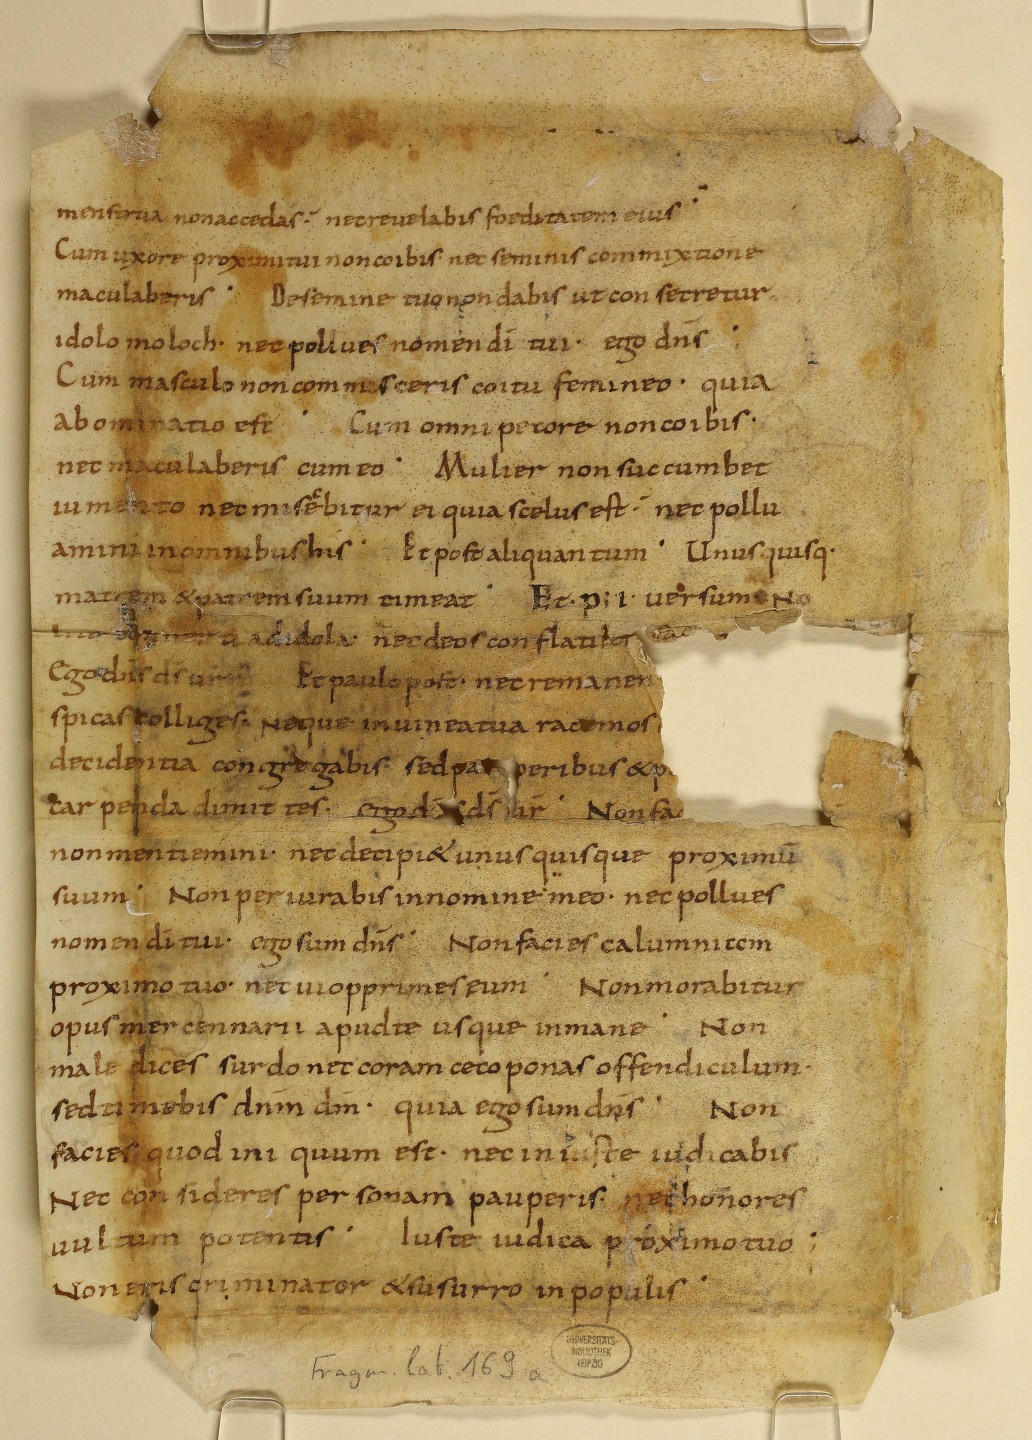 menstrua non accedas· nec revelabis foeditatem eius
Cum uxore proximi tui non coibis nec seminis commixtione
maculaberis · De semine tuo non dabis ut consecretur
idolo moloch· nec pollues nomen di tui· ego dns
Cum masculo non commisceris coitu femineo· quia
abominatio est · Cum omni pecore non coibis·
nec maculaberis cum eo · Mulier non succumbet
iumento nec miscebitur ei quia scelus est· nec pollu
amini in omnibus his · Et post aliquantum · Unusquisq·
matrem & patrem suum timeat · Et· p; i· versum No
ad idola· nec deos conflatiles
Ego dns ds · Et paulo post· nec remanen
spicas colliges· neque in uinea tua racemos
decidentia congregabis· sed pau peribus & p
carpenda dimittes· ego ds ur · Non fac
non mentiemini· nec decipi& unusquisque proximu
suum · Non periurabis in nomine meo· nec pollues
nomen di tui· ego sum dns · Non facies calumniam
proximo tuo· nec ui opprimes eum · Non morabitur
opus mercennarii apud te usque in mane · Non
male dices surdo nec coram ceco ponas offendiculum·
sed timebis dnm dm· quia ego sum dns · Non
facies quod iniquum est· nec iniuste iudicabis
Nec consideres personam pauperis· nec honores
uultum potentis · Iuste iudica proximo tuo ;
Non eris criminator & susurro in populis ·
Fragm. lat. 169 a
UNIVERSITÄTS-
BIBLIOTHEK
LEIPZIG